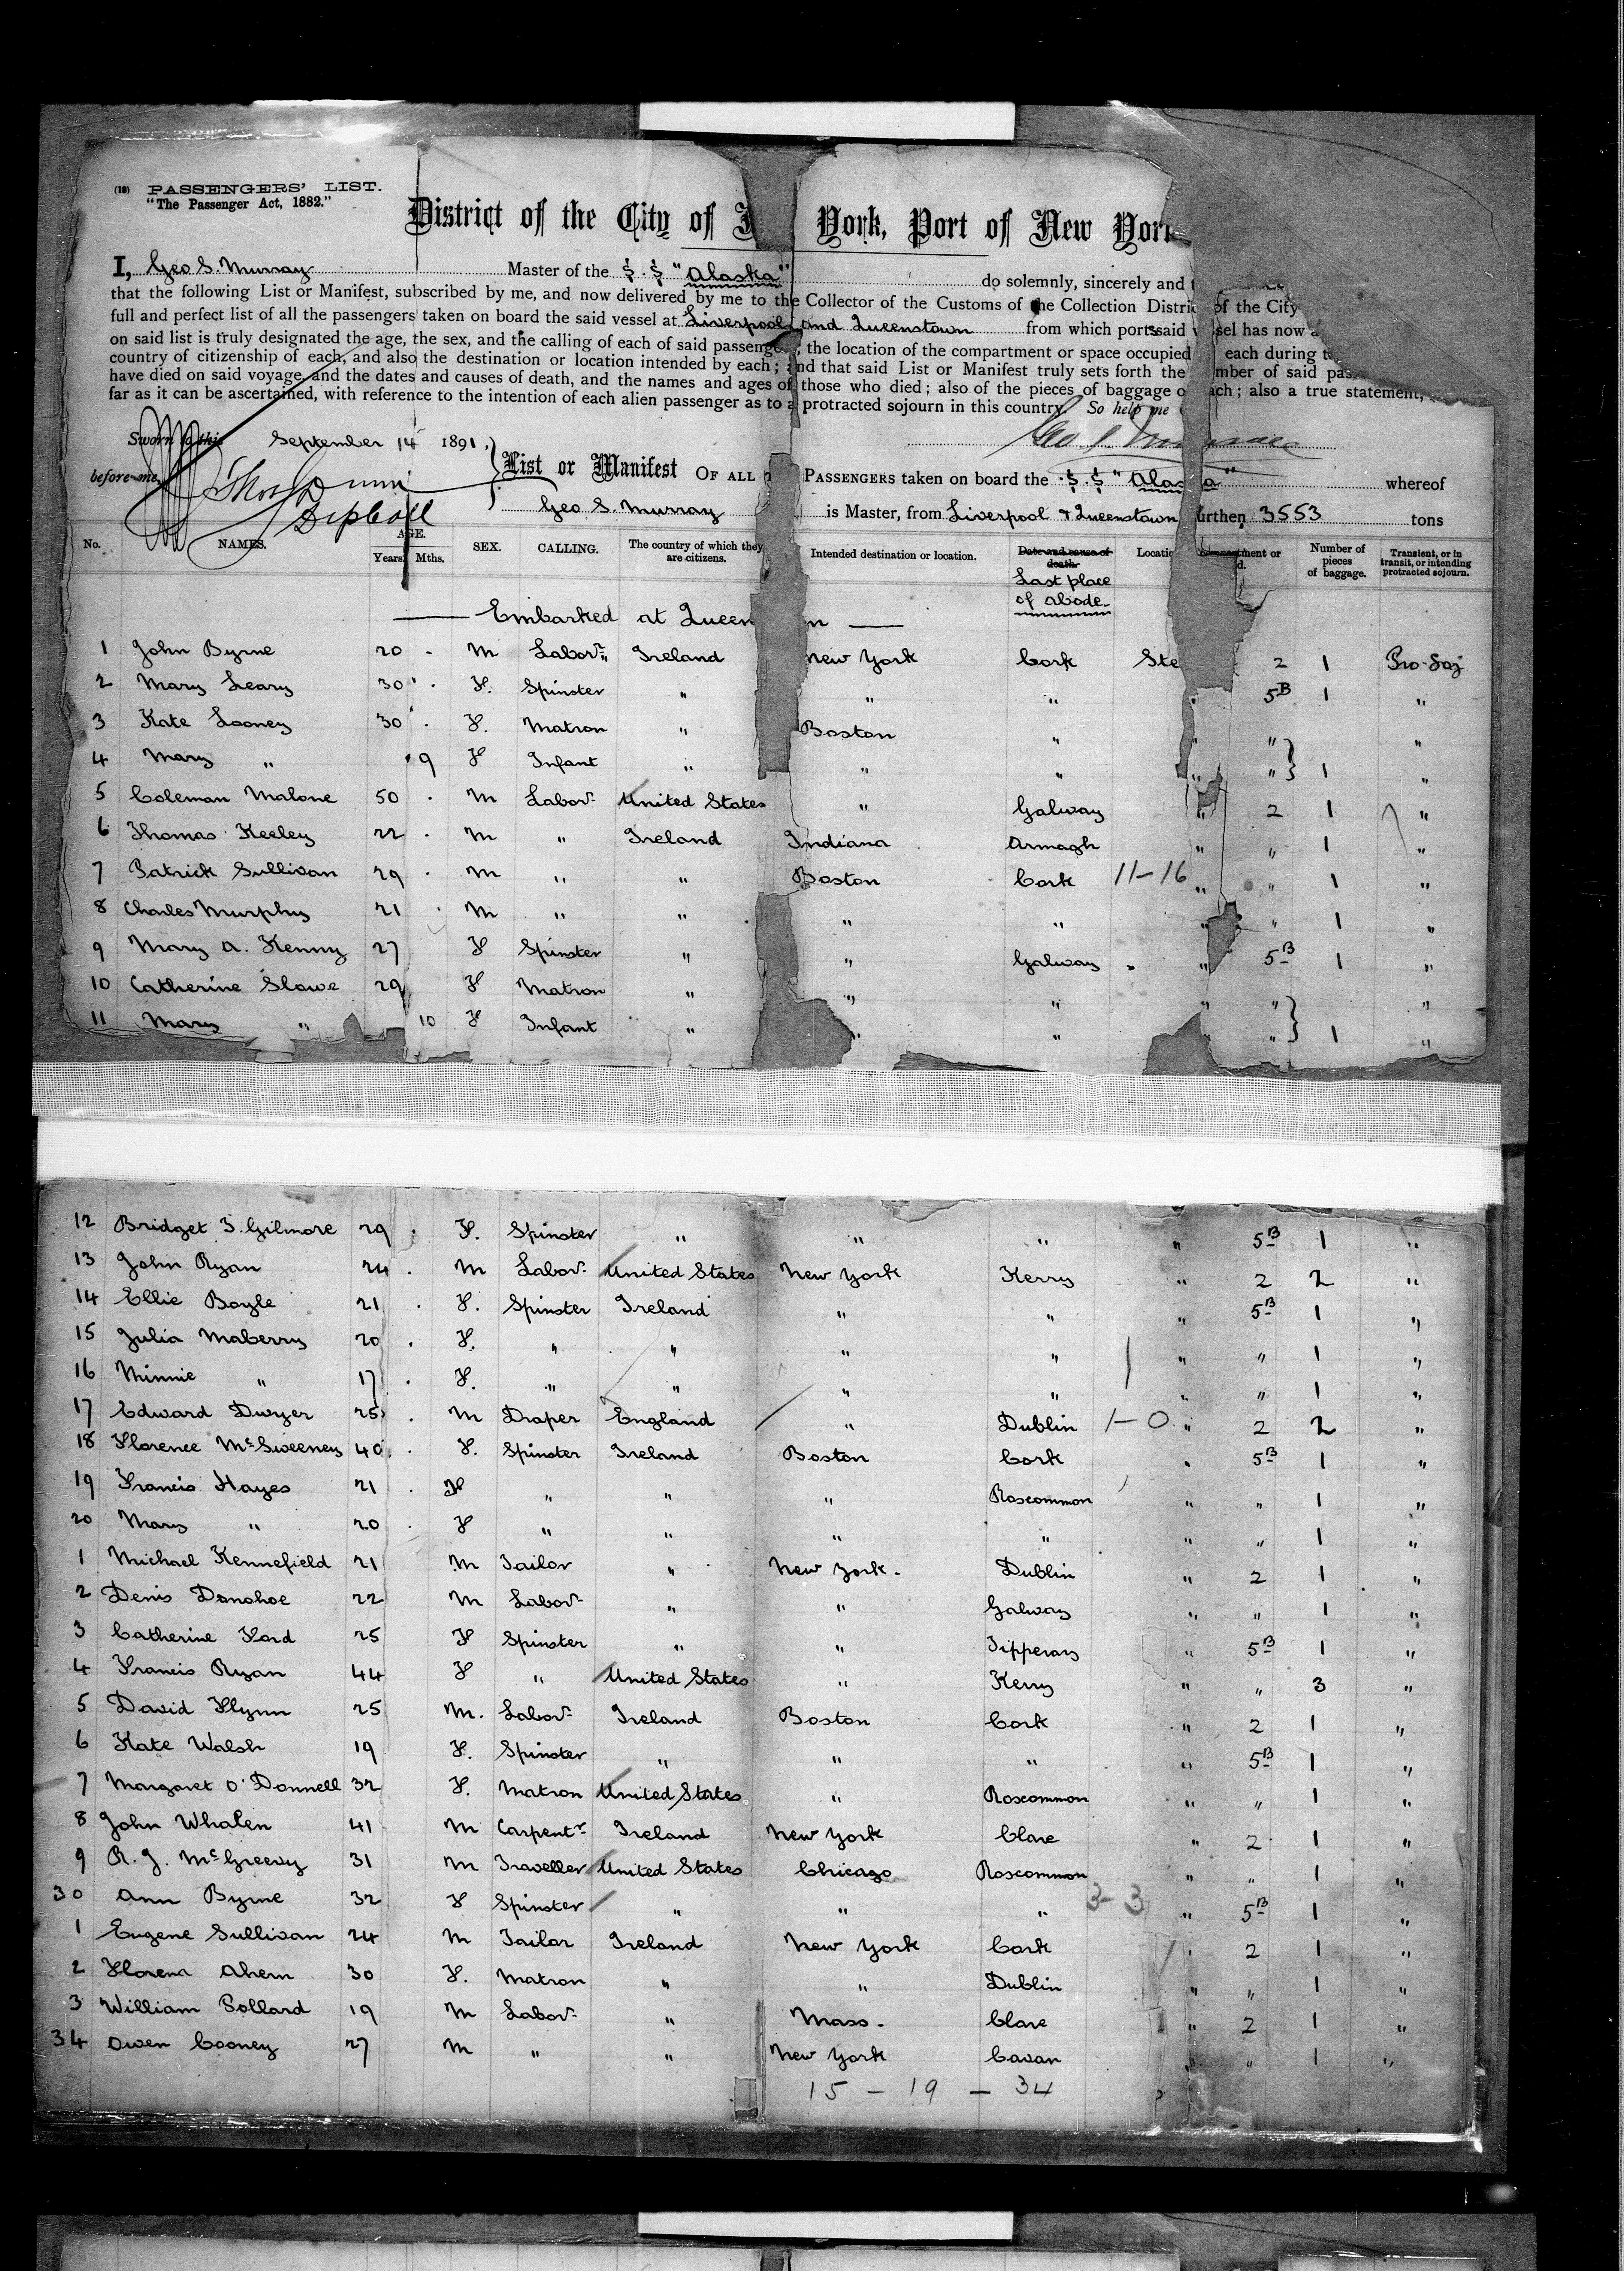 (18) PASSENGERS' LIST.
"The Passenger Act, 1882."
District of the City of York, Port of New York
I, Geo S. Murray Master of the S.S "Alaska" do solemnly, sincerely and
that the following List or Manifest, subscribed by me, and now delivered by me to the Collector of the Customs of the Collection District of the City
full and perfect list of all the passengers taken on board the said vessel at Liverpool and Queenstown from which ports said vessel has now
on said list is truly designated the age, the sex, and the calling of each of said passengers, the location of the compartment or space occupied each during
country of citizenship of each, and also the destination or location intended by each; and that said List or Manifest truly sets forth the number of said
have died on said voyage, and the dates and causes of death, and the names and ages of those who died; also of the pieces of baggage of each; also a true statement,
far as it can be ascertained, with reference to the intention of each alien passenger as to a protracted sojourn in this country. So help me
Sworn to this September 14 1891
before me
Dep Coll
List or Manifest OF ALL PASSENGERS taken on board the S.S "Alaska" whereof
Geo S. Murray is Master, from Liverpool & Queenstown burthen 3553 tons
No. NAMES. AGE. Years. Mths. SEX. CALLING. The country of which they are citizens. Intended destination or location. Date and cause of death. Last place of abode. Number of pieces of baggage. Transient, or in transit, or intending protracted sojourn.
Embarked at Queen n
1 John Byrne 20 - M Labor. Ireland New York Cork Ste 2 1 Pro-Soj
2 Mary Leary 30 . F. Spinster " " " " 5B 1 "
3 Kate Looney 30 . F. Matron " Boston " " " "
4 Mary " 9 F Infant " " " " " 1 "
5 Coleman Malone 50 . M Labor. United States " Galway " 2 1 "
6 Thomas Keeley 22 . M " Ireland Indiana Armagh " " 1 "
7 Patrick Sullivan 29 . M " " Boston Cork 11-16 " " 1 "
8 Charles Murphy 21 . M " " " " " " 1 "
9 Mary A. Kenny 27 F Spinster " " Galway " 5B 1 "
10 Catherine Slowe 29 F Matron " " " " " "
11 Mary " 10 F Infant " " " " 1 "
12 Bridget T. Gilmore 29 . F. Spinster " " " " 5B 1 "
13 John Ryan 24 . M Labor. United States New York Kerry " 2 2 "
14 Ellie Boyle 21 . F. Spinster Ireland " " " 5B 1 "
15 Julia Maberry 20 . F. " " " " " " 1 "
16 Minnie " 17 . F. " " " " " " 1 "
17 Edward Dwyer 25 . M Draper England " Dublin 1-0 " 2 2 "
18 Florence McSweeney 40 . F. Spinster Ireland Boston Cork " 5B 1 "
19 Francis Hayes 21 . F " " " Roscommon " " 1 "
20 Mary " 20 . F " " " " " " 1 "
1 Michael Kennefield 21 M Tailor " New York. Dublin " 2 1 "
2 Denis Donohoe 22 M Labor. " " Galway " " 1 "
3 Catherine Ford 25 F Spinster " " Tipperary " 5B 1 "
4 Francis Ryan 44 F " United States " Kerry " " 3 "
5 David Flynn 25 M. Labor. Ireland Boston Cork " 2 1 "
6 Kate Walsh 19 F. Spinster " " " " 5B 1 "
7 Margaret O'Donnell 32 F. Matron United States " Roscommon " " 1 "
8 John Whalen 41 M Carpentr. Ireland New York Clare " 2 1 "
9 R. J. McGreevy 31 M Traveller United States Chicago Roscommon " " 1 "
30 Ann Byrne 32 F Spinster " " " 3-3 " 5B 1 "
1 Eugene Sullivan 24 M Tailor Ireland New York Cork " 2 1 "
2 Florence Ahern 30 F. Matron " " Dublin " " 1 "
3 William Pollard 19 M Labor. " Mass. Clare " 2 1 "
34 Owen Cooney 27 M " " New York Cavan " " 1 "
15 - 19 - 34